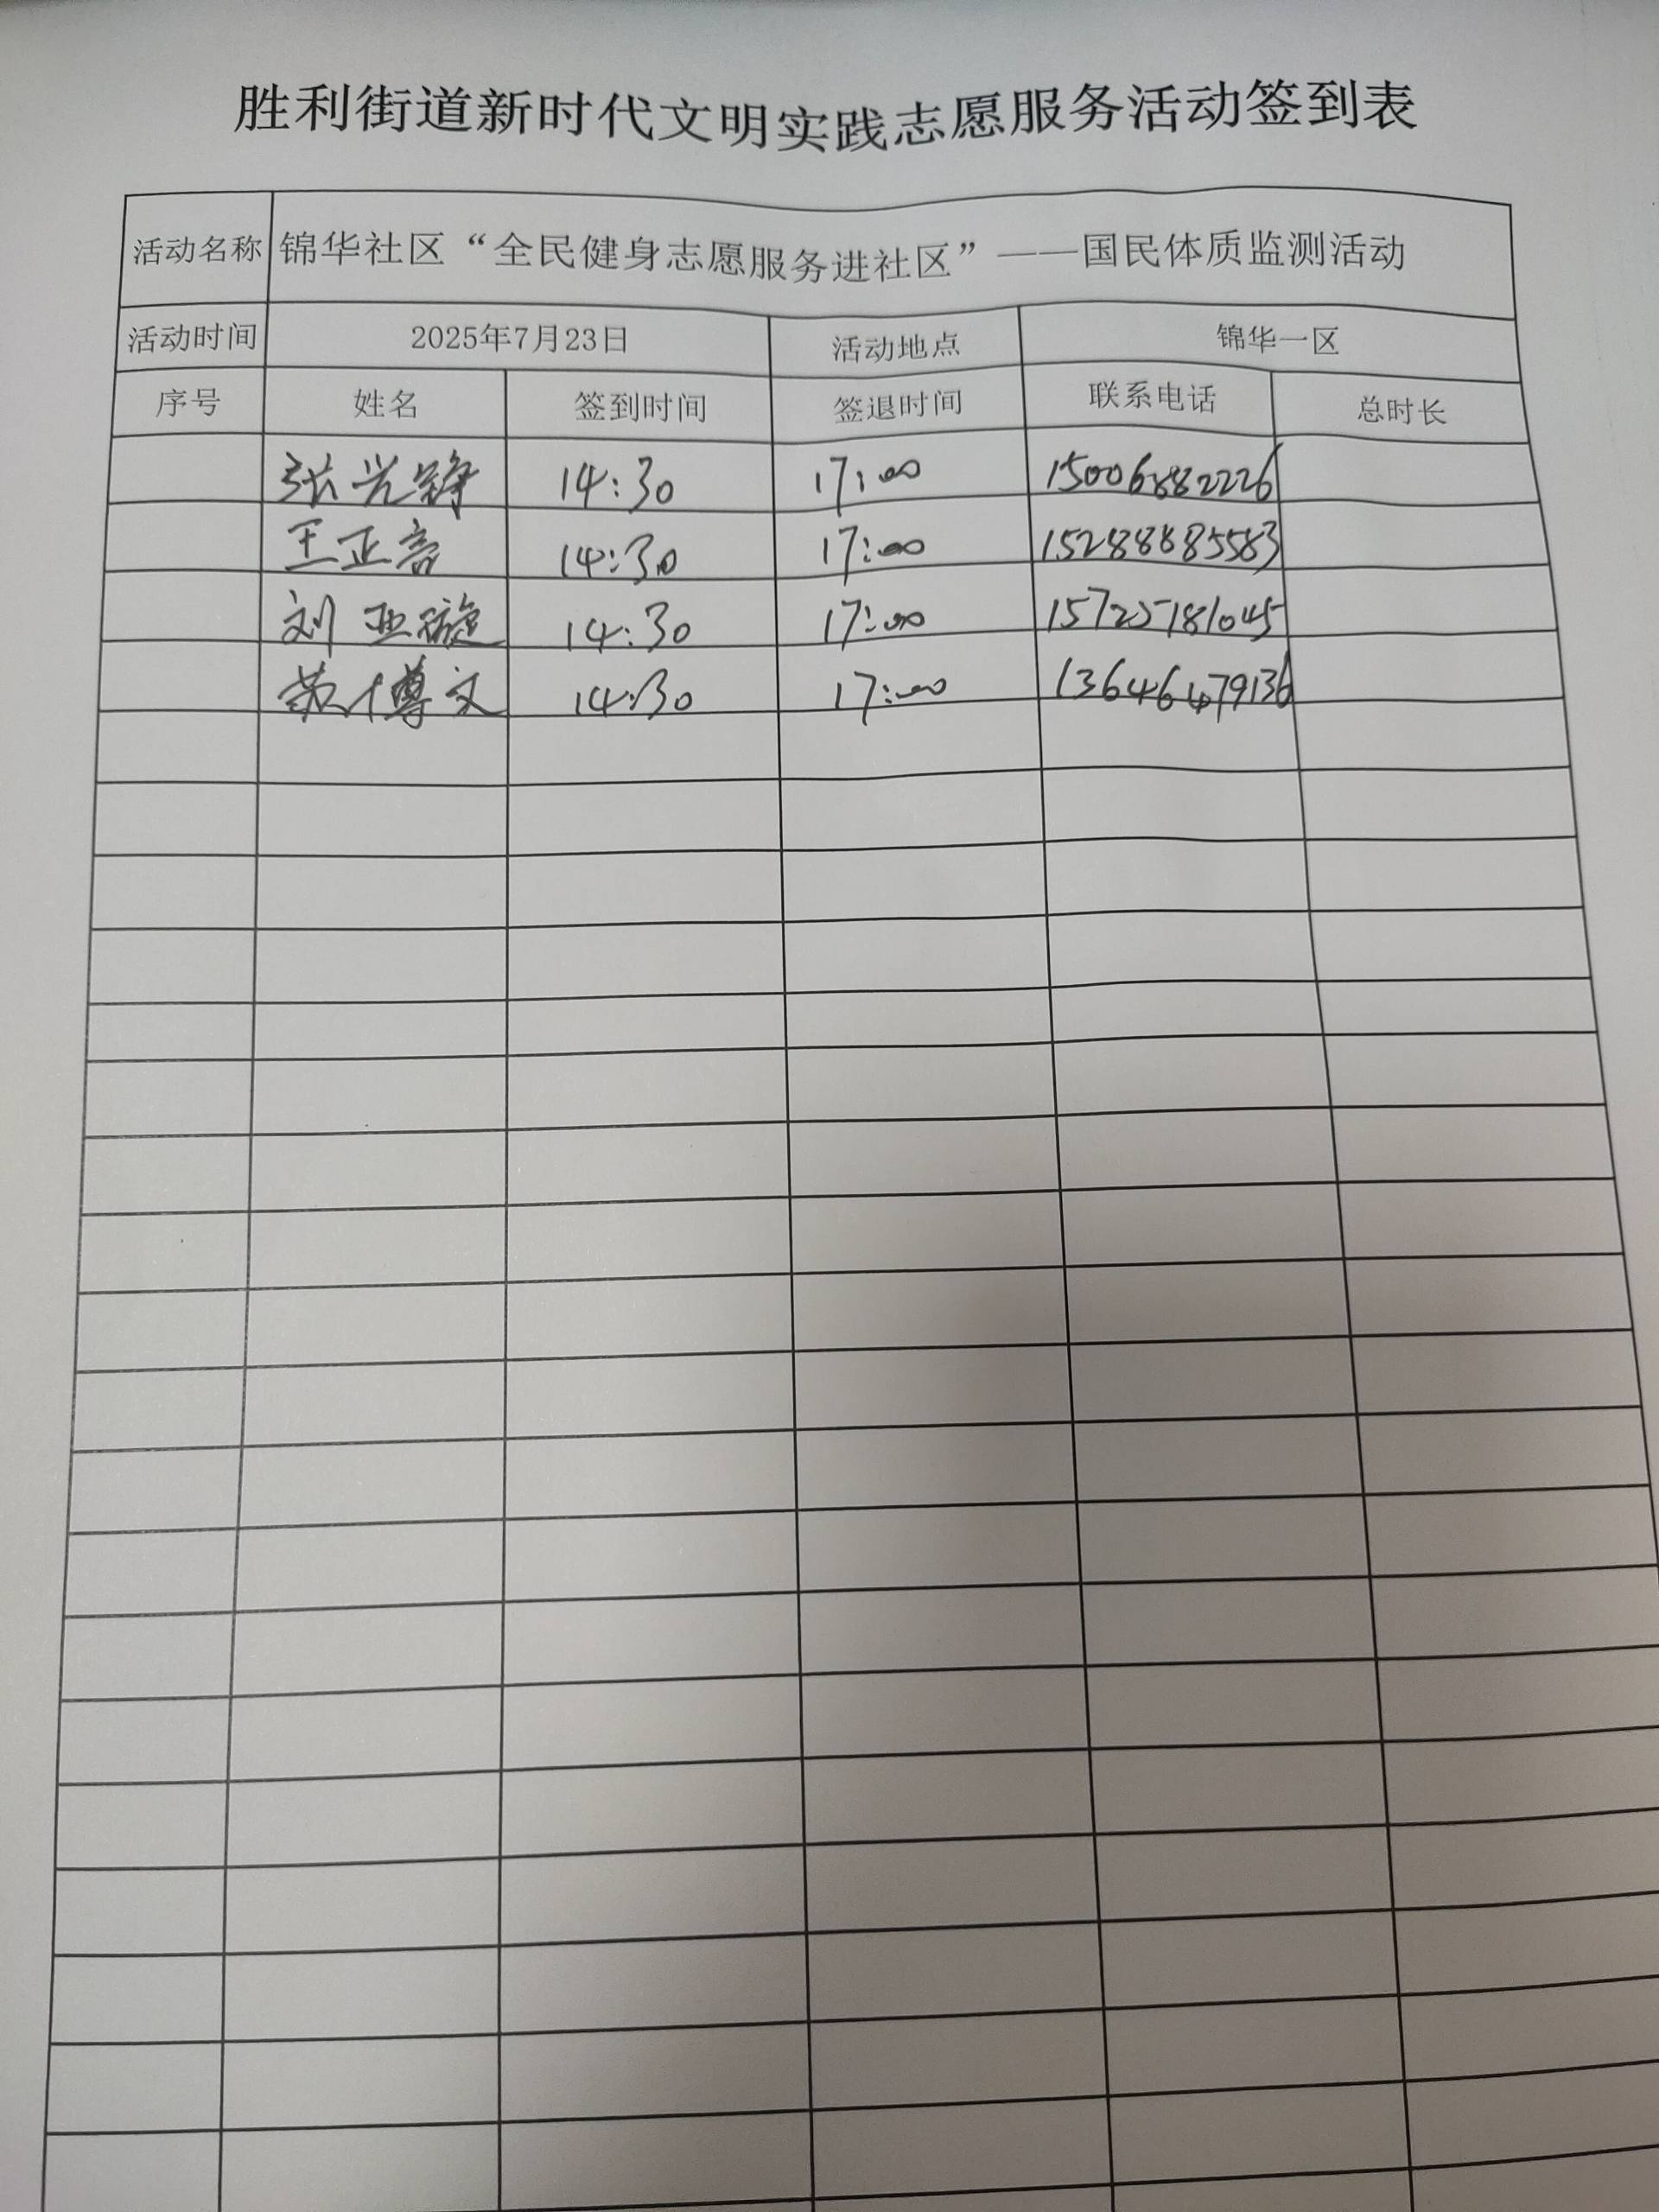 胜利街道新时代文明实践志愿服务活动签到表
活动名称 锦华社区“全民健身志愿服务进社区”——国民体质监测活动
活动时间 2025年7月23日 活动地点 锦华一区
序号 姓名 签到时间 签退时间 联系电话 总时长
张兴锋 14:30 17:00 15006882226
王正亮 14:30 17:00 15288885583
刘亚璇 14:30 17:00 15725181045
黄博文 14:30 17:00 13646479136